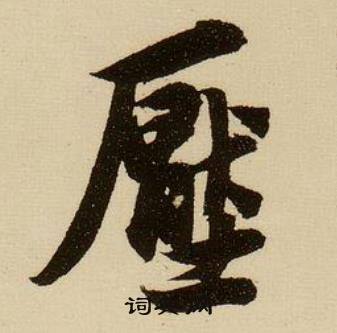 壓
词典网